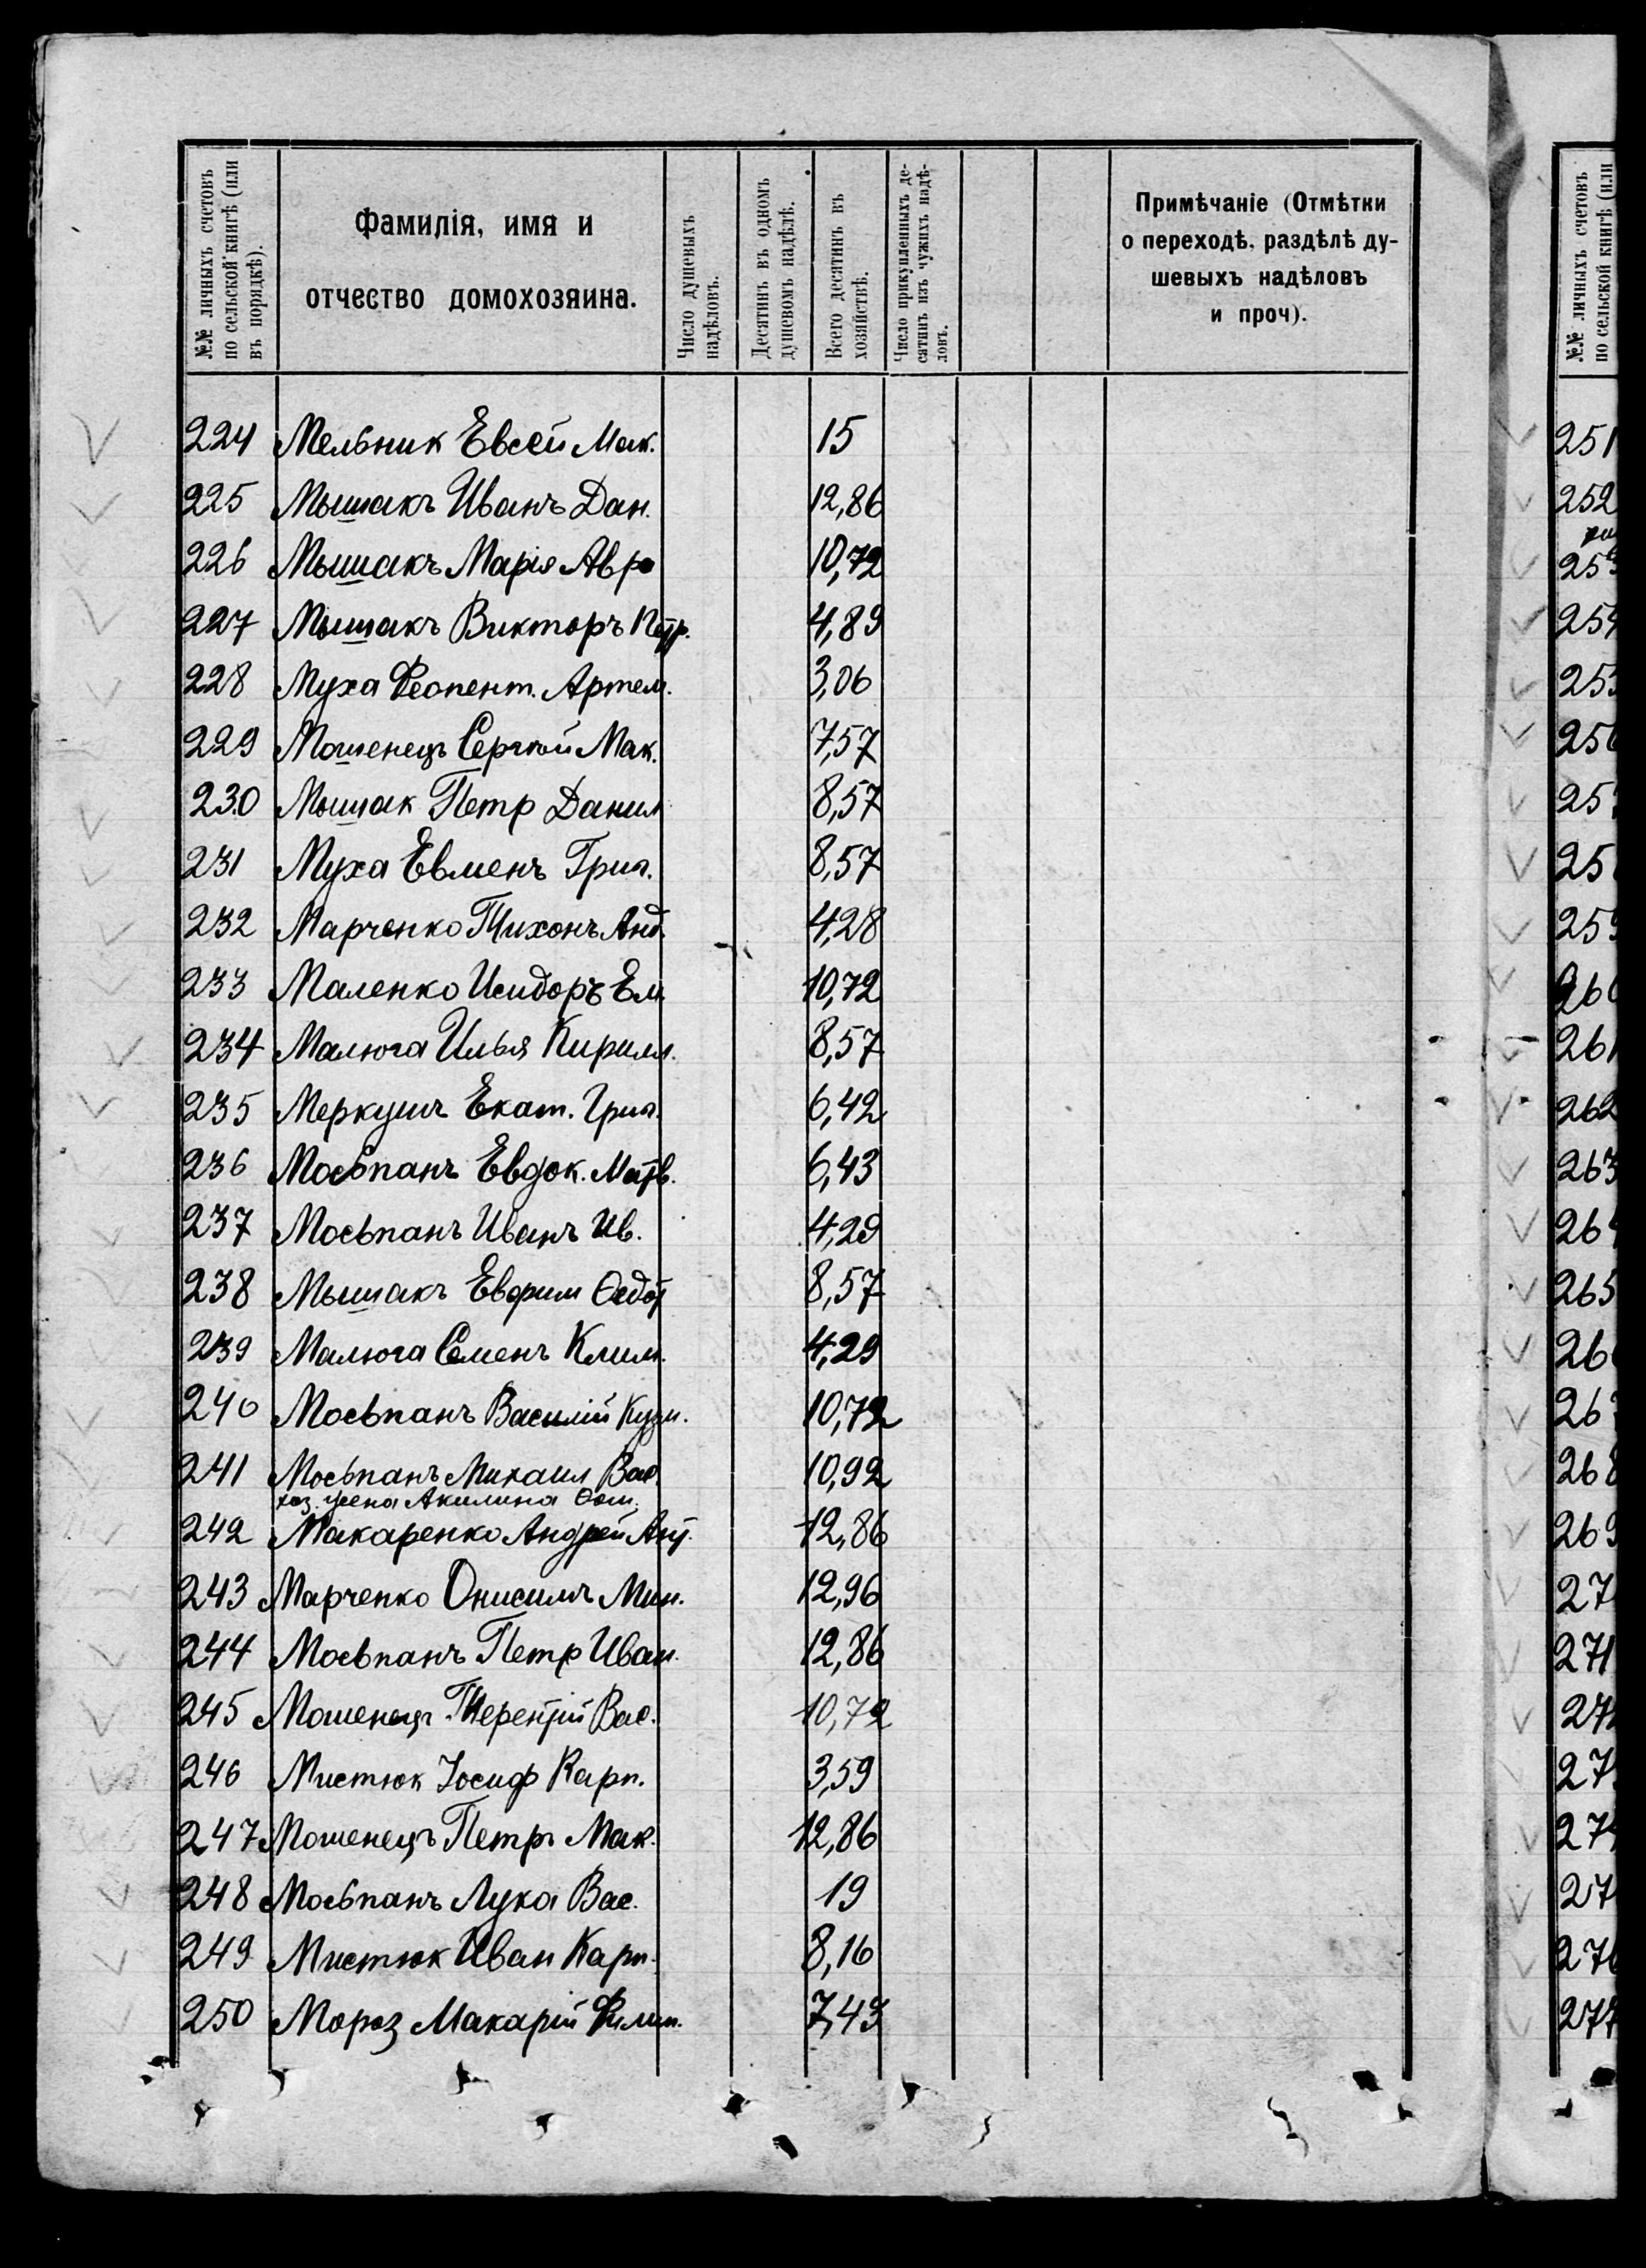 №№ личныхъ счетовъ
по сельской книгѣ (или
въ порядкѣ).
Фамилія, имя и
отчество домохозяина.
Число душевыхъ
надѣловъ.
Десятинъ въ одномъ
душевомъ надѣлѣ.
Всего десятинъ въ
хозяйствѣ.
Число прикупленныхъ де-
сятинъ изъ чужихъ надѣ-
ловъ.
Примѣчаніе (Отмѣтки
о переходѣ, раздѣлѣ ду-
шевыхъ надѣловъ
и проч).
224 Мельник Евсей Мак. 15
225 Мышакъ Иванъ Дан. 12,86
226 Мышакъ Марія Авр 10,72
227 Мышакъ Викторъ Петр. 4,89
228 Муха Феопент. Артем. 3,06
229 Мошенецъ Сергѣй Мак. 7,57
230 Мышак Петр Данил 8,57
231 Муха Евменъ Григ. 8,57
232 Марченко Тихонъ Анд. 4,28
233 Маленко Исидоръ Ем. 10,72
234 Малюга Илья Кирилл. 8,57
235 Меркуши Екат. Григ. 6,42
236 Мосьпанъ Евдок. Матв. 6,43
237 Мосьпанъ Иванъ Ив. 4,29
238 Мышакъ Евфрим Ѳедот 8,57
239 Малюга Семенъ Клим. 4,29
240 Мосьпанъ Василій Кузм. 10,72
241 Мосьпанъ Михаил Вас. 10,92
хоз. жена Акилина Ѳом.
242 Макаренко Андрей Ант. 12,86
243 Марченко Онисимъ Мин. 12,96
244 Мосьпанъ Петр Иван. 12,86
245 Мошенецъ Терентій Вас. 10,72
246 Мистюк Іосиф Карп. 3,59
247 Мошенецъ Петръ Мак. 12,86
248 Мосьпанъ Лука Вас. 19
249 Мистюк Иван Карп. 8,16
250 Мороз Макарій Филип. 7,43
№№ личныхъ счетовъ
по сельской книгѣ (или
251
252
261
262
263
265
268
271
277